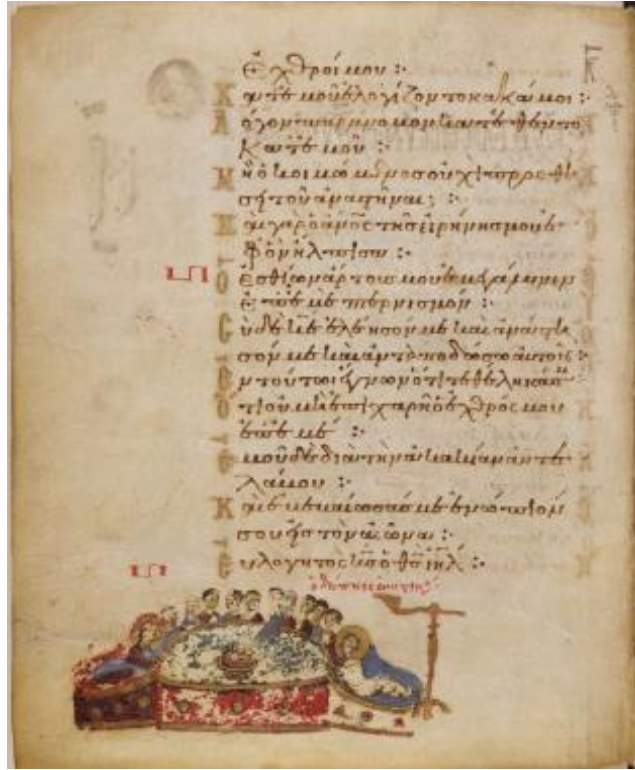 Ἐχθροί μου :·
Κατ ἐμοῦ ἐλογίζοντο κακά μοι :
Λόγον παράνομον κατέθεντο
Κατ ἐμοῦ :·
Μὴ ὁ κοιμώμενος οὐχὶ προσθή
ση τοῦ ἀναστῆναι ;
Καὶ γὰρ ὁ ἄνος τῆς εἰρήνης μου ἐ
φ ὃν ἤλπισα :·
Ὁ ἐσθίων ἄρτους μου ἐμεγάλυνεν
Ἐπ ἐμὲ πτερνισμόν :·
Σὺ δὲ κε ἐλέησόν με καὶ ἀνάστη
σόν με καὶ ἀνταποδώσω αὐτοῖς
Ἐν τούτωι ἔγνων ὅτι τεθέληκάς
Ὅτι οὐ μὴ ἐπιχαρῆ ὁ ἐχθρός μου
ἐπ ἐμὲ :·
Ἐμοῦ δὲ διὰ τὴν ἀκακίαν ἀντε
λάβου :·
Καὶ ἐβεβαίωσάς με ἐνώπιόν
σου εἰς τὸν αἰῶνα :·
Εὐλογητὸς κς ὁ θς ιηλ :·